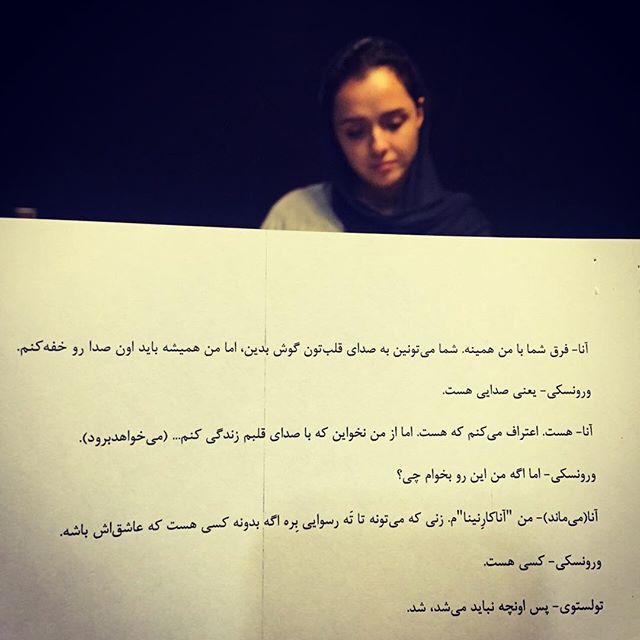 آنا- فرق شما با من همینه. شما می‌تونین به صدای قلب‌تون گوش بدین، اما من همیشه باید اون صدا رو خفه‌کنم.
ورونسکی- یعنی صدایی هست.
آنا- هست. اعتراف می‌کنم که هست. اما از من نخواین که با صدای قلبم زندگی کنم... (می‌خواهدبرود).
ورونسکی- اما اگه من این رو بخوام چی؟
آنا(می‌ماند)- من "آناکارِنینا"م. زنی که می‌تونه تا تَه رسوایی بِره اگه بدونه کسی هست که عاشق‌اش باشه.
ورونسکی- کسی هست.
تولستوی- پس اونچه نباید می‌شد، شد.